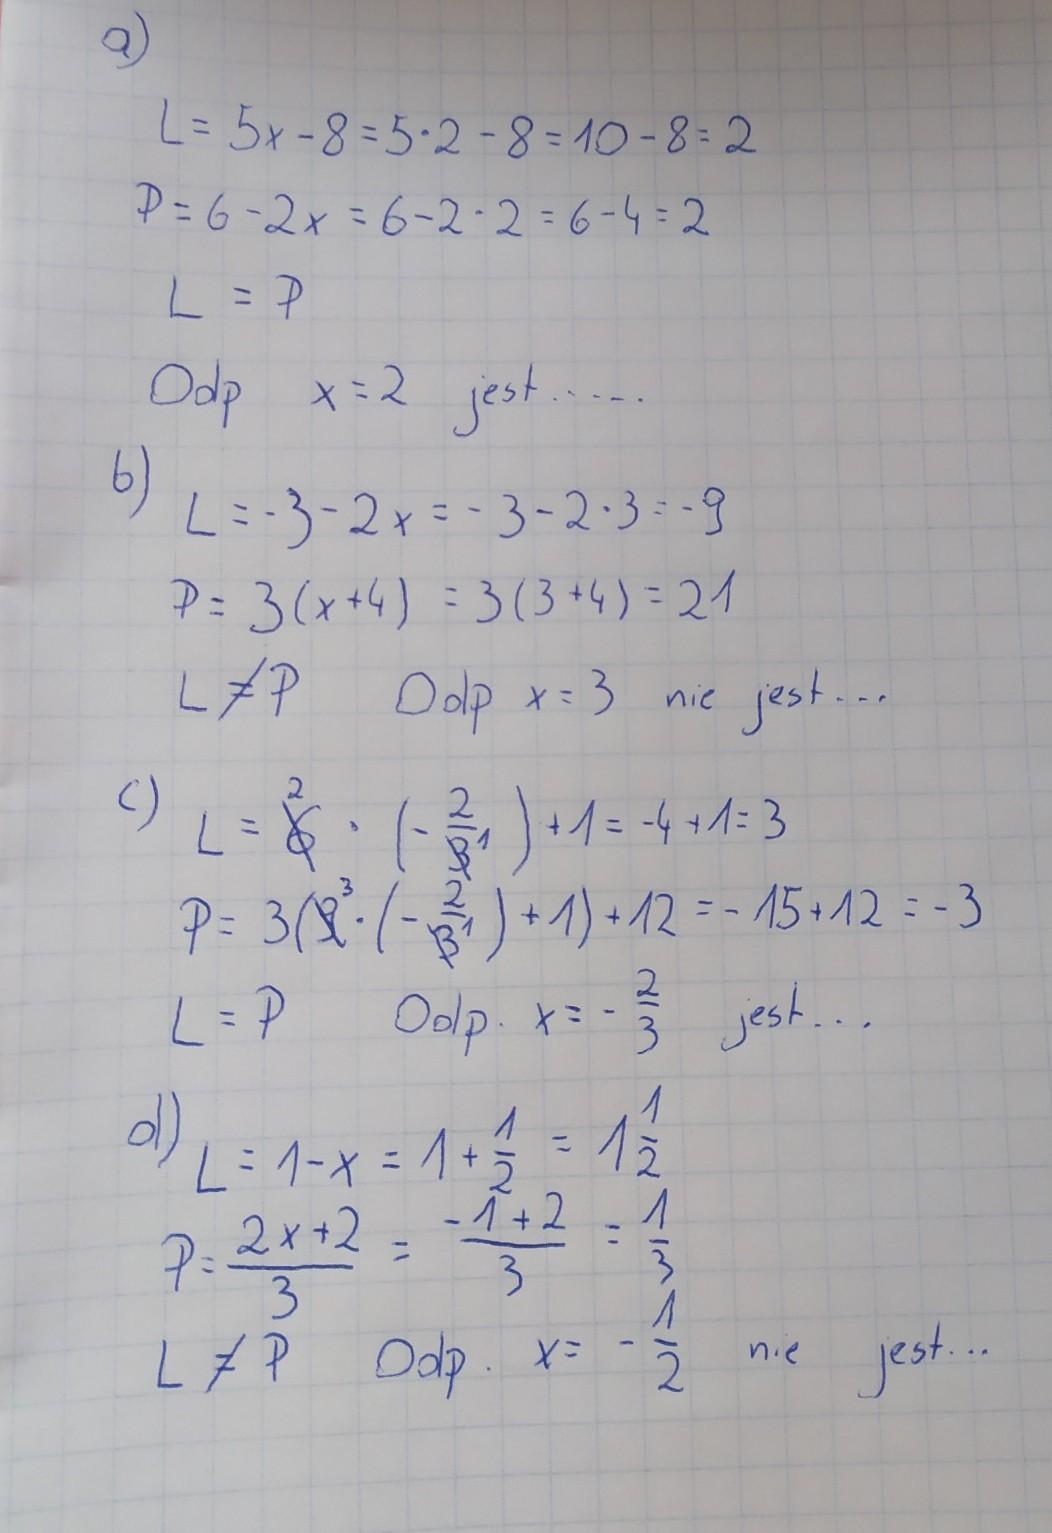 a)
L = 5x - 8 = 5·2 - 8 = 10 - 8 = 2
P = 6 - 2x = 6 - 2·2 = 6 - 4 = 2
L = P
Odp x = 2 jest.....
b)
L = -3 - 2x = -3 - 2·3 = -9
P = 3(x+4) = 3(3+4) = 21
L ≠ P Odp x = 3 nie jest...
c)
L = 6̸² · (-2/3̸¹) + 1 = -4 + 1 = 3
P = 3(9̸³ · (-2/3̸¹) + 1) + 12 = -15 + 12 = -3
L = P Odp. x = -2/3 jest...
d)
L = 1 - x = 1 + 1/2 = 1 1/2
P = (2x+2)/3 = (-1+2)/3 = 1/3
L ≠ P Odp. x = -1/2 nie jest...